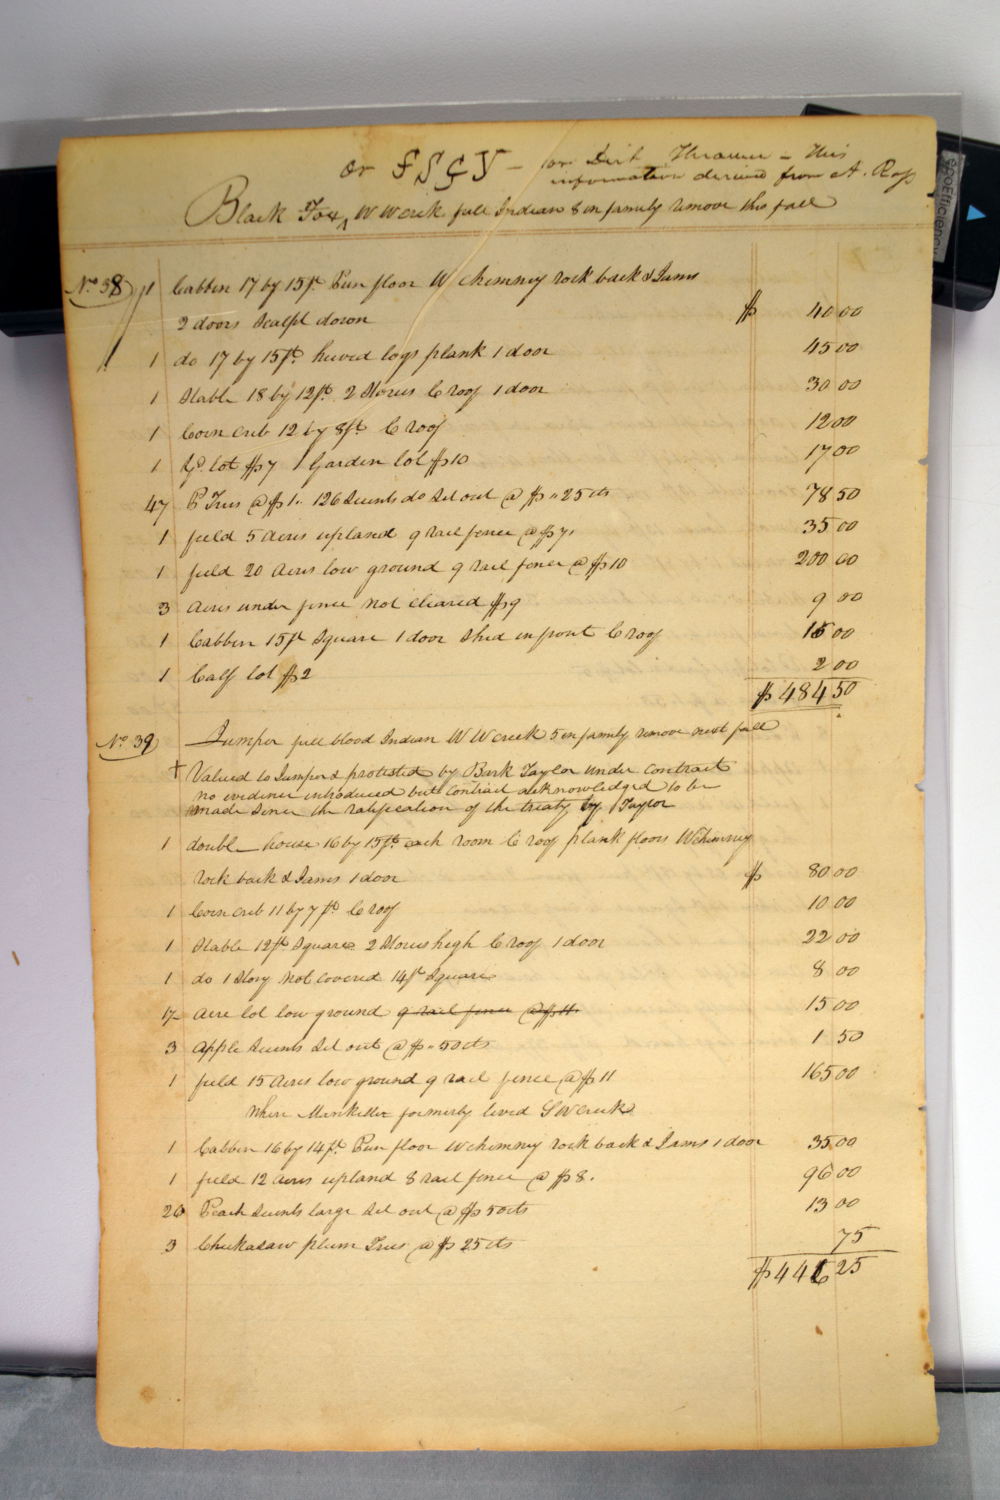 or ᎦᏚᎩᎩ – or Dirt Thrower – this
information derived from A. Ross
Black Fox W W Creek full Indian 8 in family remove this fall
No. 38 1 Cabbin 17 by 15ft Pun floor W chimney rock back & Jams
2 doors Scalpt down $ 40 00
1 do 17 by 15ft hewed logs plank 1 door 45 00
1 Stable 18 by 12ft 2 Stories C roof 1 door 30 00
1 Corn crib 12 by 8ft C roof 12 00
1 Yd. lot $7 1 Garden lot $10 17 00
47 P Trees @ $1.. 126 Scients do Set out @ $ " 25 cts 78 50
1 field 5 acres upland 9 rail fence @ $7. 35 00
1 field 20 acres low ground 9 rail fence @ $10 200 00
3 acres under fence not cleared $9 9 00
1 Cabbin 15ft Square 1 door Shed in front C roof 16 00
1 Calf lot $2 2 00
$484 50
No. 39 Jumper full blood Indian W W Creek 5 in family remove next fall
† Valued to Jumper & protested by Bark Taylor under Contract
no evidence introduced but Contract acknowledged to be
made Since the ratification of the treaty by Taylor
1 double house 16 by 15ft each room C roof plank floors W chimney
rock back & Jams 1 door $ 80 00
1 Corn crib 11 by 7ft C roof 10 00
1 Stable 12ft Square 2 Stories high C roof 1 door 22 00
1 do 1 Story not covered 14ft Square 8 00
acre lot low ground 9 rail fence @ $11. 15 00
3 apple Scients Set out @ $ " 50 cts 1 50
1 field 15 acres low ground 9 rail fence @ $11 165 00
where Mankiller formerly lived S W Creek
1 Cabbin 16 by 14ft Pun floor W chimney rock back & Jams 1 door 35 00
1 field 12 acres upland 8 rail fence @ $8. 96 00
26 Peach Scients large Set out @ $ 50 cts 13 00
3 Chickasaw plum Trees @ $ 25 cts 75
$446 25
ecoEfficiency